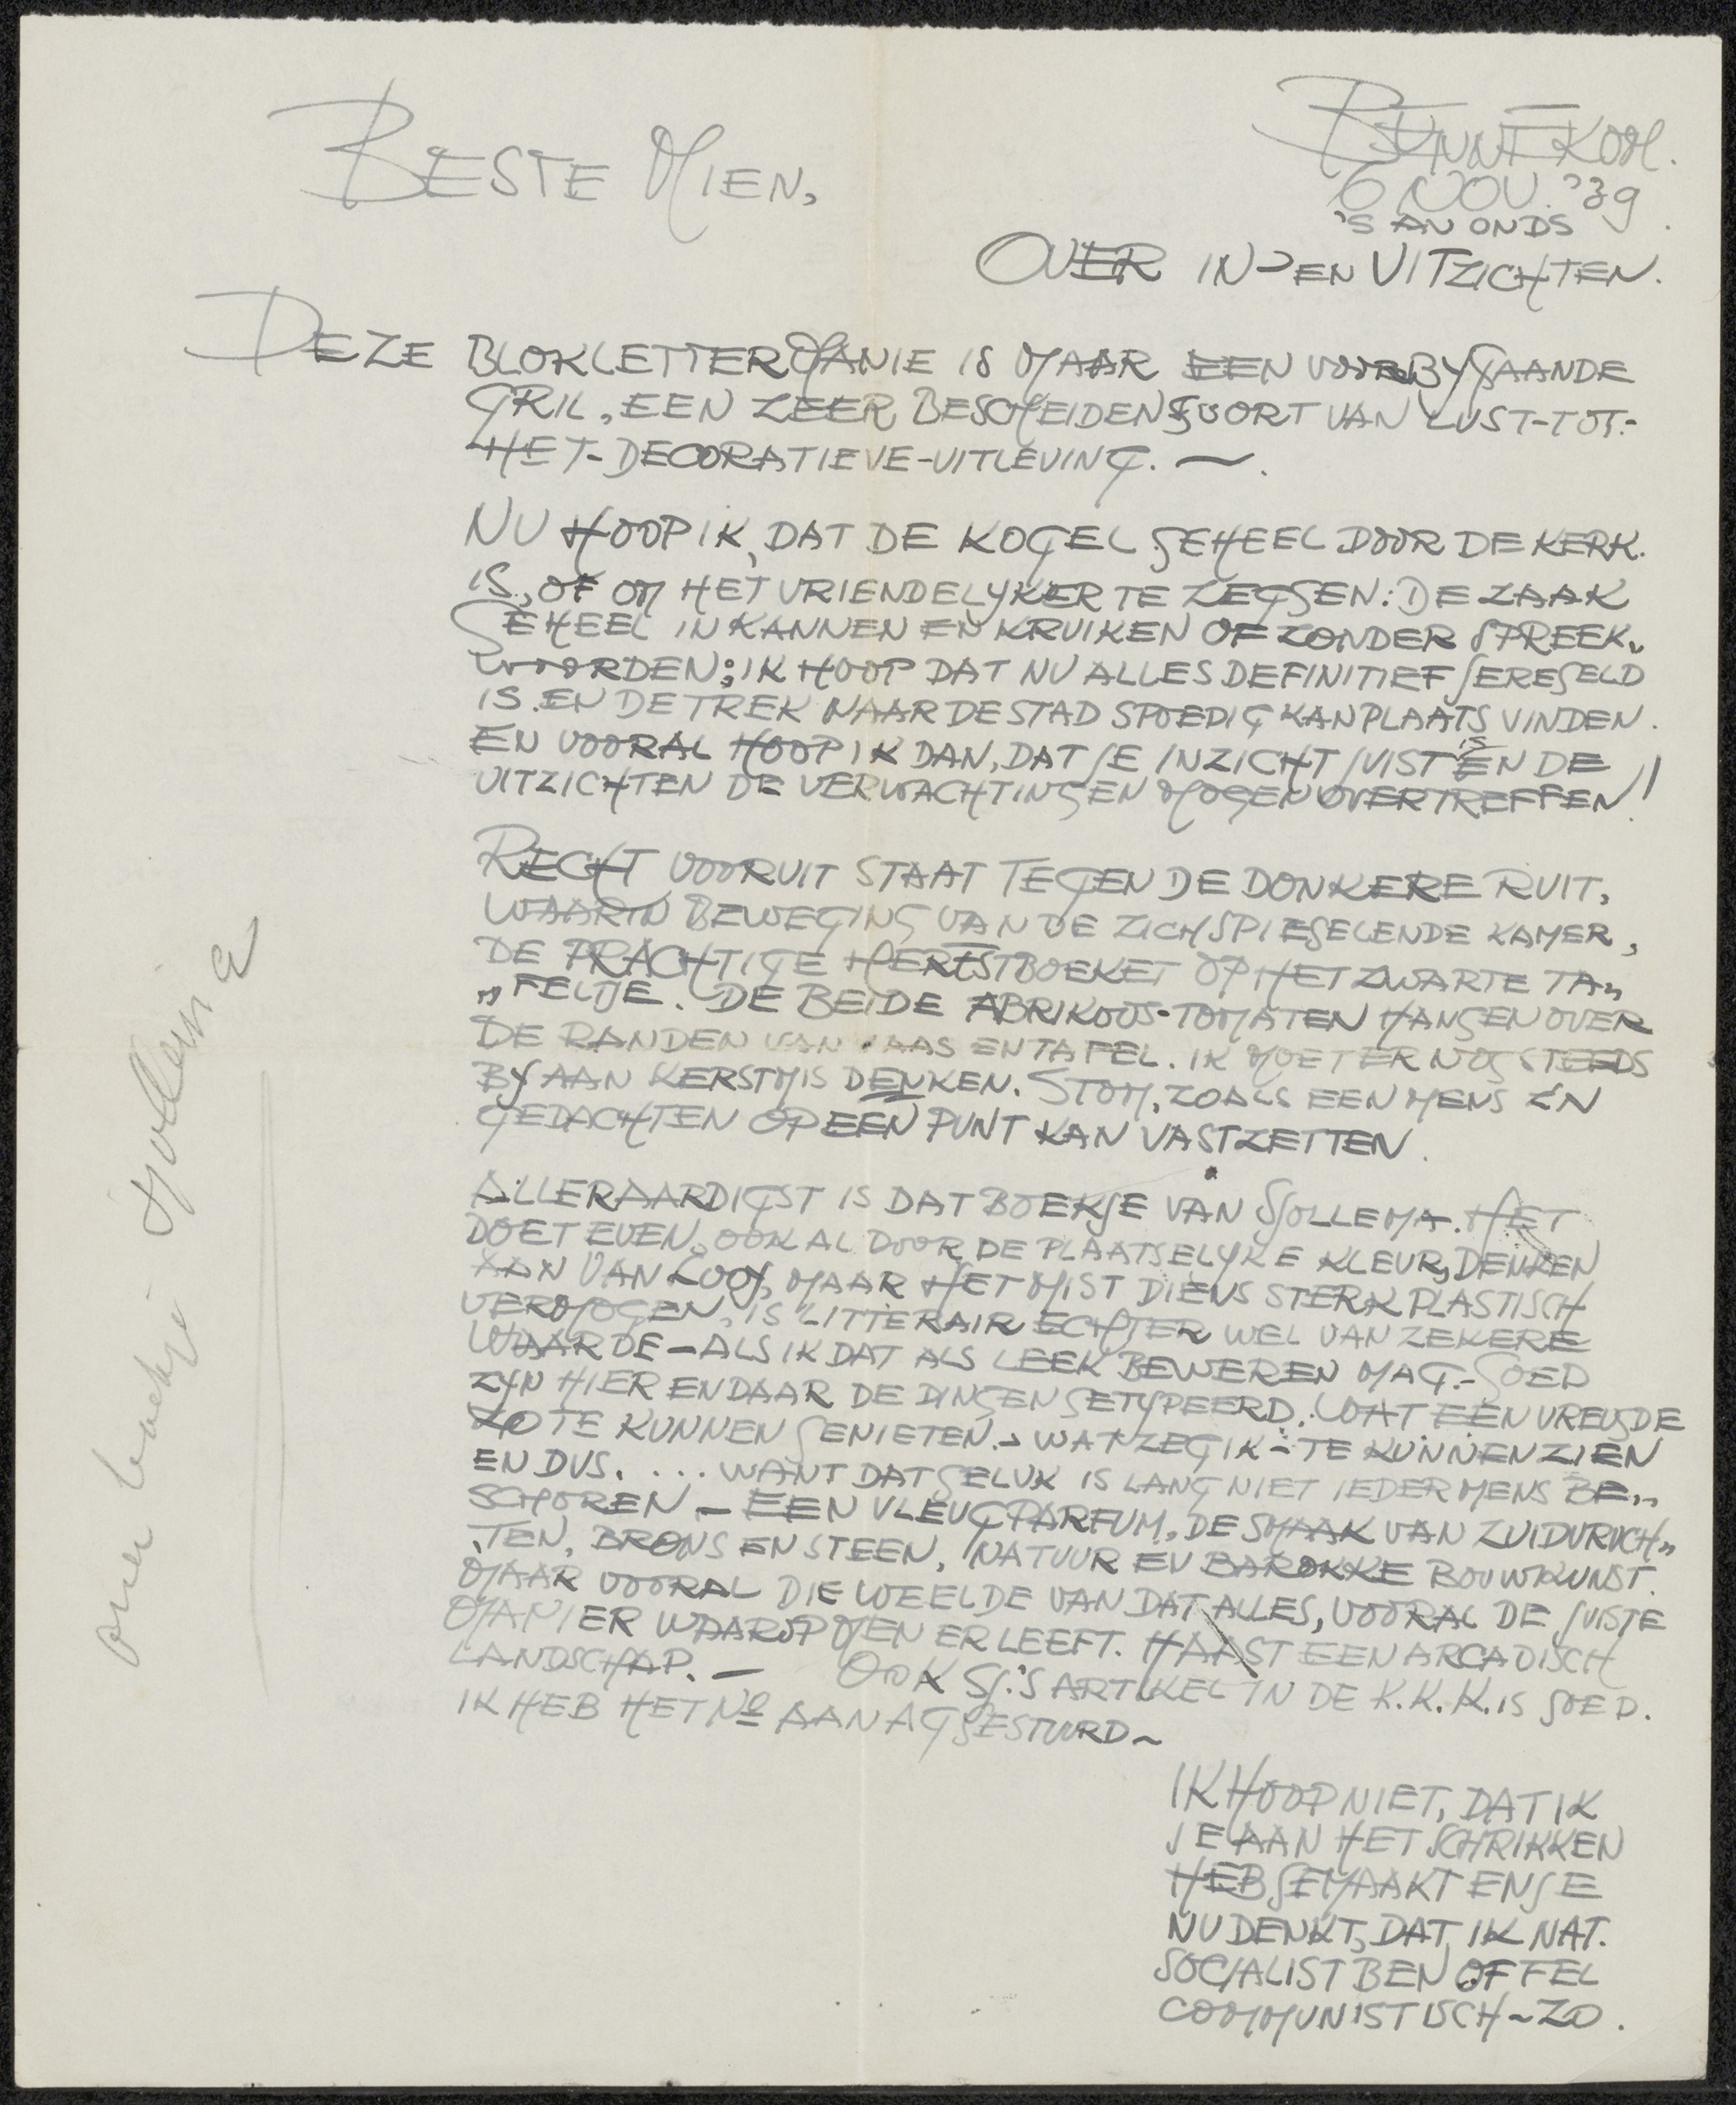 BENNEKOM.
6 NOV. '39
'S AVONDS
BESTE MIEN,
OVER IN- EN UITZICHTEN.
DEZE BLOKLETTERMANIE IS MAAR EEN VOORBYGAANDE
GRIL, EEN ZEER BESCHEIDEN SOORT VAN LUST-TOT-
HET-DECORATIEVE-UITLEVING. —.
NU HOOP IK, DAT DE KOGEL GEHEEL DOOR DE KERK.
IS, OF OM HET VRIENDELYKER TE ZEGGEN: DE ZAAK
GEHEEL IN KANNEN EN KRUIKEN OF ZONDER SPREEK„
WOORDEN; IK HOOP DAT NU ALLES DEFINITIEF GEREGELD
IS. EN DE TREK NAAR DE STAD SPOEDIG KAN PLAATS VINDEN.
EN VOORAL HOOP IK DAN, DAT JE INZICHT JUIST IS EN DE
UITZICHTEN DE VERWACHTINGEN MOGEN OVERTREFFEN!
RECHT VOORUIT STAAT TEGEN DE DONKERE RUIT,
WAARIN BEWEGING VAN DE ZICH SPIEGELENDE KAMER,
DE PRACHTIGE HERFSTBOEKET OP HET ZWARTE TA„
„FELTJE. DE BEIDE ABRIKOOS-TOMATEN HANGEN OVER
DE RANDEN VAN VAAS EN TAFEL. IK MOET ER NOG STEEDS
BY AAN KERSTMIS DENKEN. STOM, ZOALS EEN MENS ZN
GEDACHTEN OP EEN PUNT KAN VASTZETTEN.
ALLERAARDIGST IS DAT BOEKJE VAN SJOLLEMA. HET
DOET EVEN, OOK AL DOOR DE PLAATSELYKE KLEUR, DENKEN
AAN VAN LOOY, MAAR HET MIST DIENS STERK PLASTISCH
VERMOGEN, IS LITTERAIR ECHTER WEL VAN ZEKERE
WAARDE – ALS IK DAT ALS LEEK BEWEREN MAG. – GOED
ZYN HIER EN DAAR DE DINGEN GETYPEERD. WAT EEN VREUGDE
ZO TE KUNNEN GENIETEN. – WAT ZEG IK – TE KUNNEN ZIEN
EN DUS. ... WANT DAT GELUK IS LANG NIET IEDER MENS BE„
SCHOREN – EEN VLEUG PARFUM, DE SMAAK VAN ZUIDVRUCH„
TEN, BRONS EN STEEN, NATUUR EN BAROKKE BOUWKUNST.
MAAR VOORAL DIE WEELDE VAN DAT ALLES, VOORAL DE JUISTE
MANIER WAAROP MEN ER LEEFT. HAAST EEN ARCADISCH
LANDSCHAP. — OOK SJ.'S ARTIKEL IN DE K.K.K. IS GOED.
IK HEB HET No AAN AG GESTUURD ~
IK HOOP NIET, DAT IK
JE AAN HET SCHRIKKEN
HEB GEMAAKT EN JE
NU DENKT, DAT IK NAT.
SOCIALIST BEN OF FEL
COMMUNISTISCH ~ ZO.
over boekje Sjollema